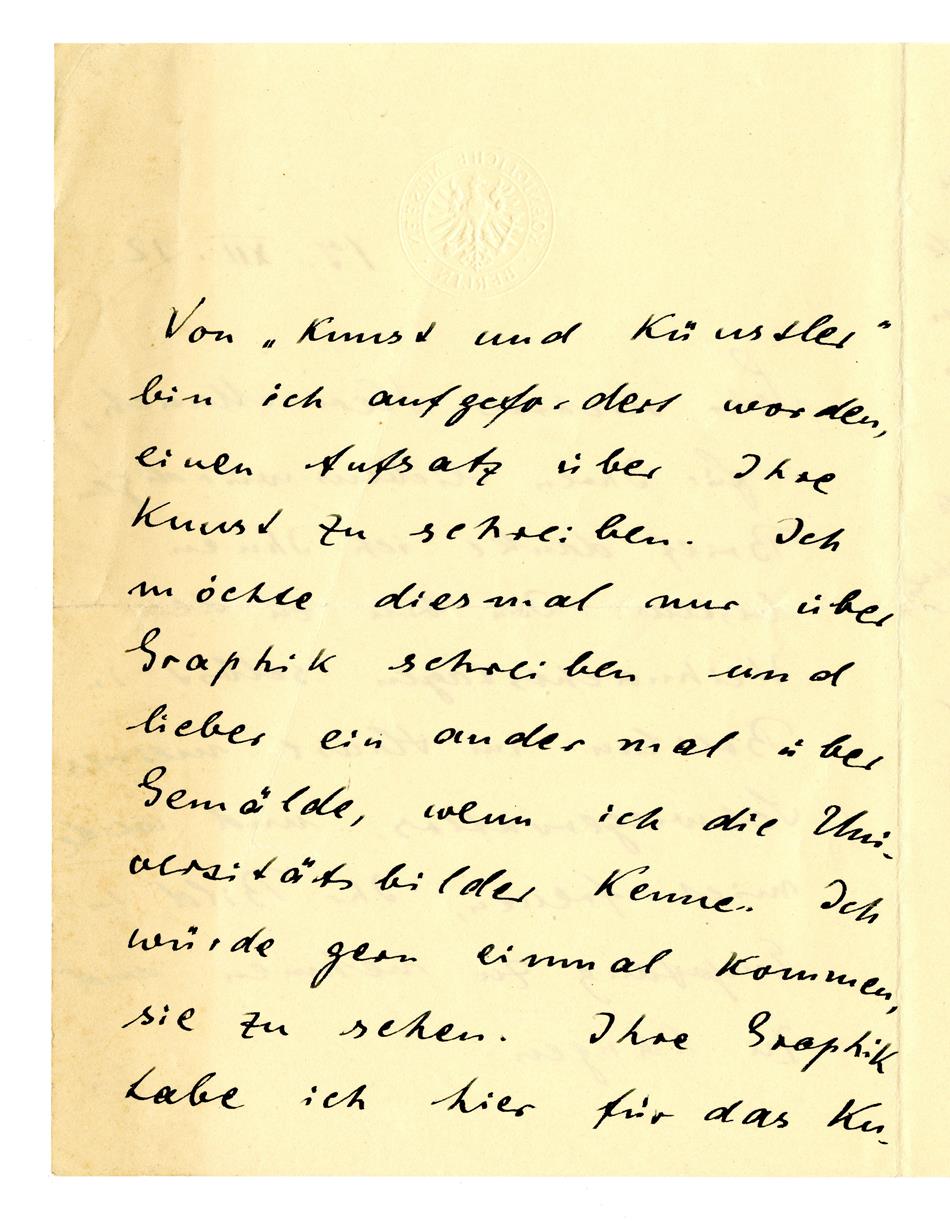 Von „Kunst und Künstler"
bin ich aufgefordert worden,
einen Aufsatz über Ihre
Kunst zu schreiben. Ich
möchte diesmal nur über
Graphik schreiben und
lieber ein andermal über
Gemälde, wenn ich die Uni-
versitätsbilder kenne. Ich
würde gern einmal kommen,
sie zu sehen. Ihre Graphik
habe ich hier für das Ku-